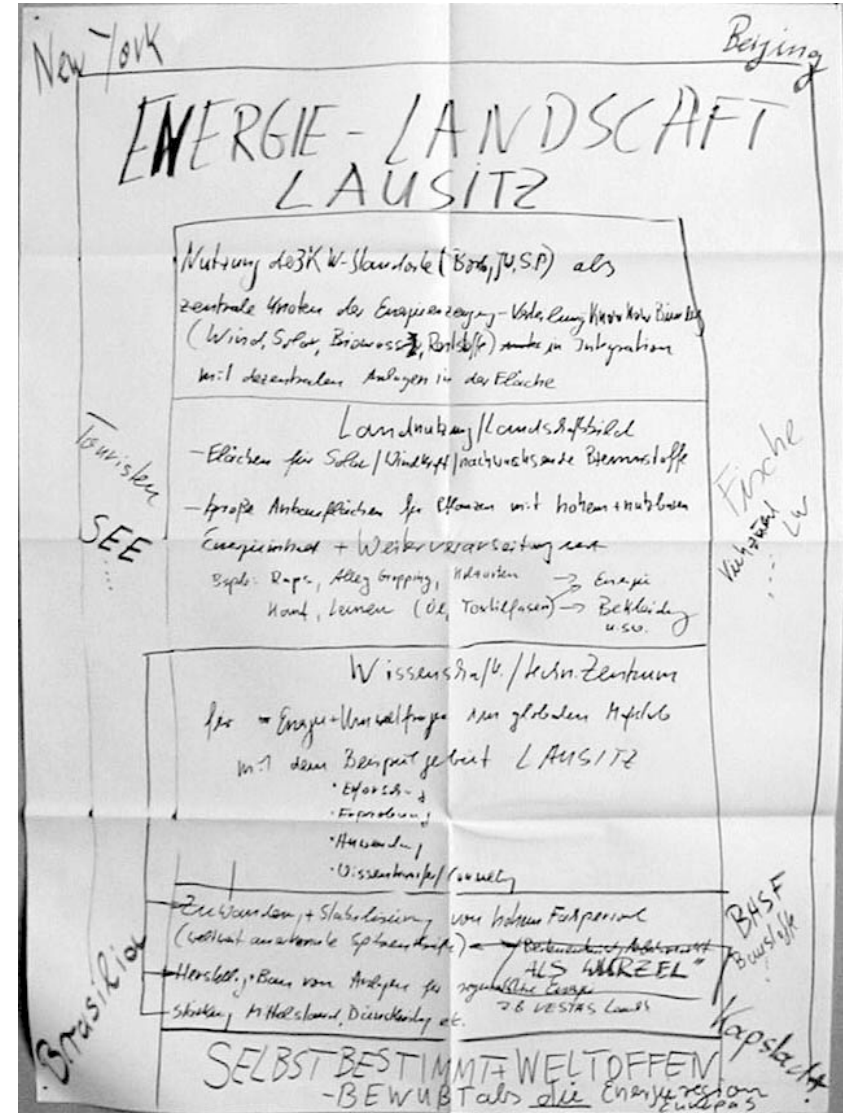 New York
Beijing
ENERGIE-LANDSCHAFT
LAUSITZ
Nutzung der 3 KW-Standorte (Boxb, JW, S.P) als
zentrale Knoten der Energieerzeugung-Verteilung Know How Bündelung
(Wind, Solar, Biomasse, Reststoffe) in Integration
mit dezentralen Anlagen in der Fläche
Landnutzung/Landschaftsbild
-Flächen für Solar/Windkraft/nachwachsende Brennstoffe
-große Anbauflächen für Pflanzen mit hohem + nutzbaren
Energieinhalt + Weiterverarbeitung
Bsple: Raps, Alley Cropping, → Energie
Hanf, Leinen (Öl, Textilfasern) → Bekleidung
u.sw.
Touristen
SEE
.....
Fische
Viehzucht
LW
....
Wissenschaftl./techn. Zentrum
für Energie+Umweltfragen im globalen Maßstab
mit dem Beispielgebiet LAUSITZ
• Erforschung
• Erprobung
• Anwendung
• Wissenstransfer/
Zuwandern + Stabilisierung von hohem Fachpersonal
(weltweit anerkannte Spitzenkräfte)
ALS WURZEL"
Herstellg. + Bau von Anlagen für regenerative Energie
z B VESTAS Lauch
Stärkung Mittelstand, Dienstleistg etc.
BASF
Baustoffe
Brasilia
Kapstadt
SELBSTBESTIMMT+WELTOFFEN
-BEWUßT als die Energieregion
Europas